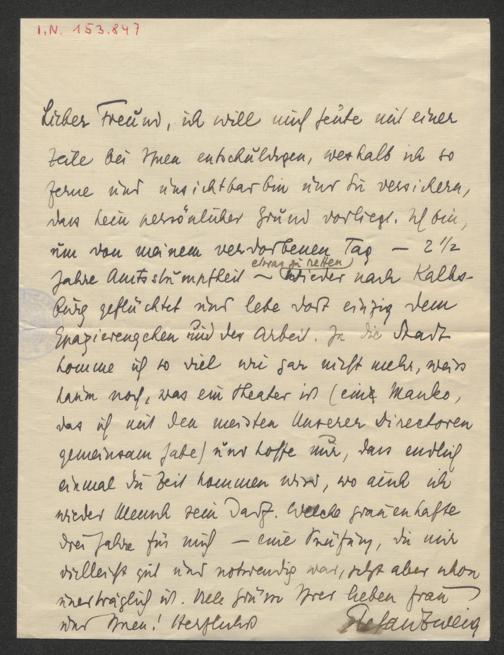 I.N. 153.847
Lieber Freund, ich will mich heute mit einer
Zeile bei Ihnen entschuldigen, weshalb ich so
ferne und unsichtbar bin und Sie versichern,
dass kein persönlicher Grund vorliegt. Ich bin,
um von meinem verdorbenen Tag — 2 1/2
etwas zu retten
Jahre Amtsstumpfheit — wieder nach Kalks-
burg geflüchtet und lebe dort einzig dem
Spazierengehen und der Arbeit. In die Stadt
komme ich so viel wie gar nicht mehr, weiss
kaum noch, was ein Theater ist (ein Manko,
das ich mit den meisten unserer Directoren
gemeinsam habe) und hoffe nur, dass endlich
einmal die Zeit kommen wird, wo auch ich
wieder Mensch sein darf. Welche grauenhafte
drei Jahre für mich — eine Prüfung, die mir
vielleicht gut und notwendig war, jetzt aber schon
unerträglich ist. Viele Grüsse Ihrer lieben Frau
und Ihnen! Herzlichst Stefan Zweig